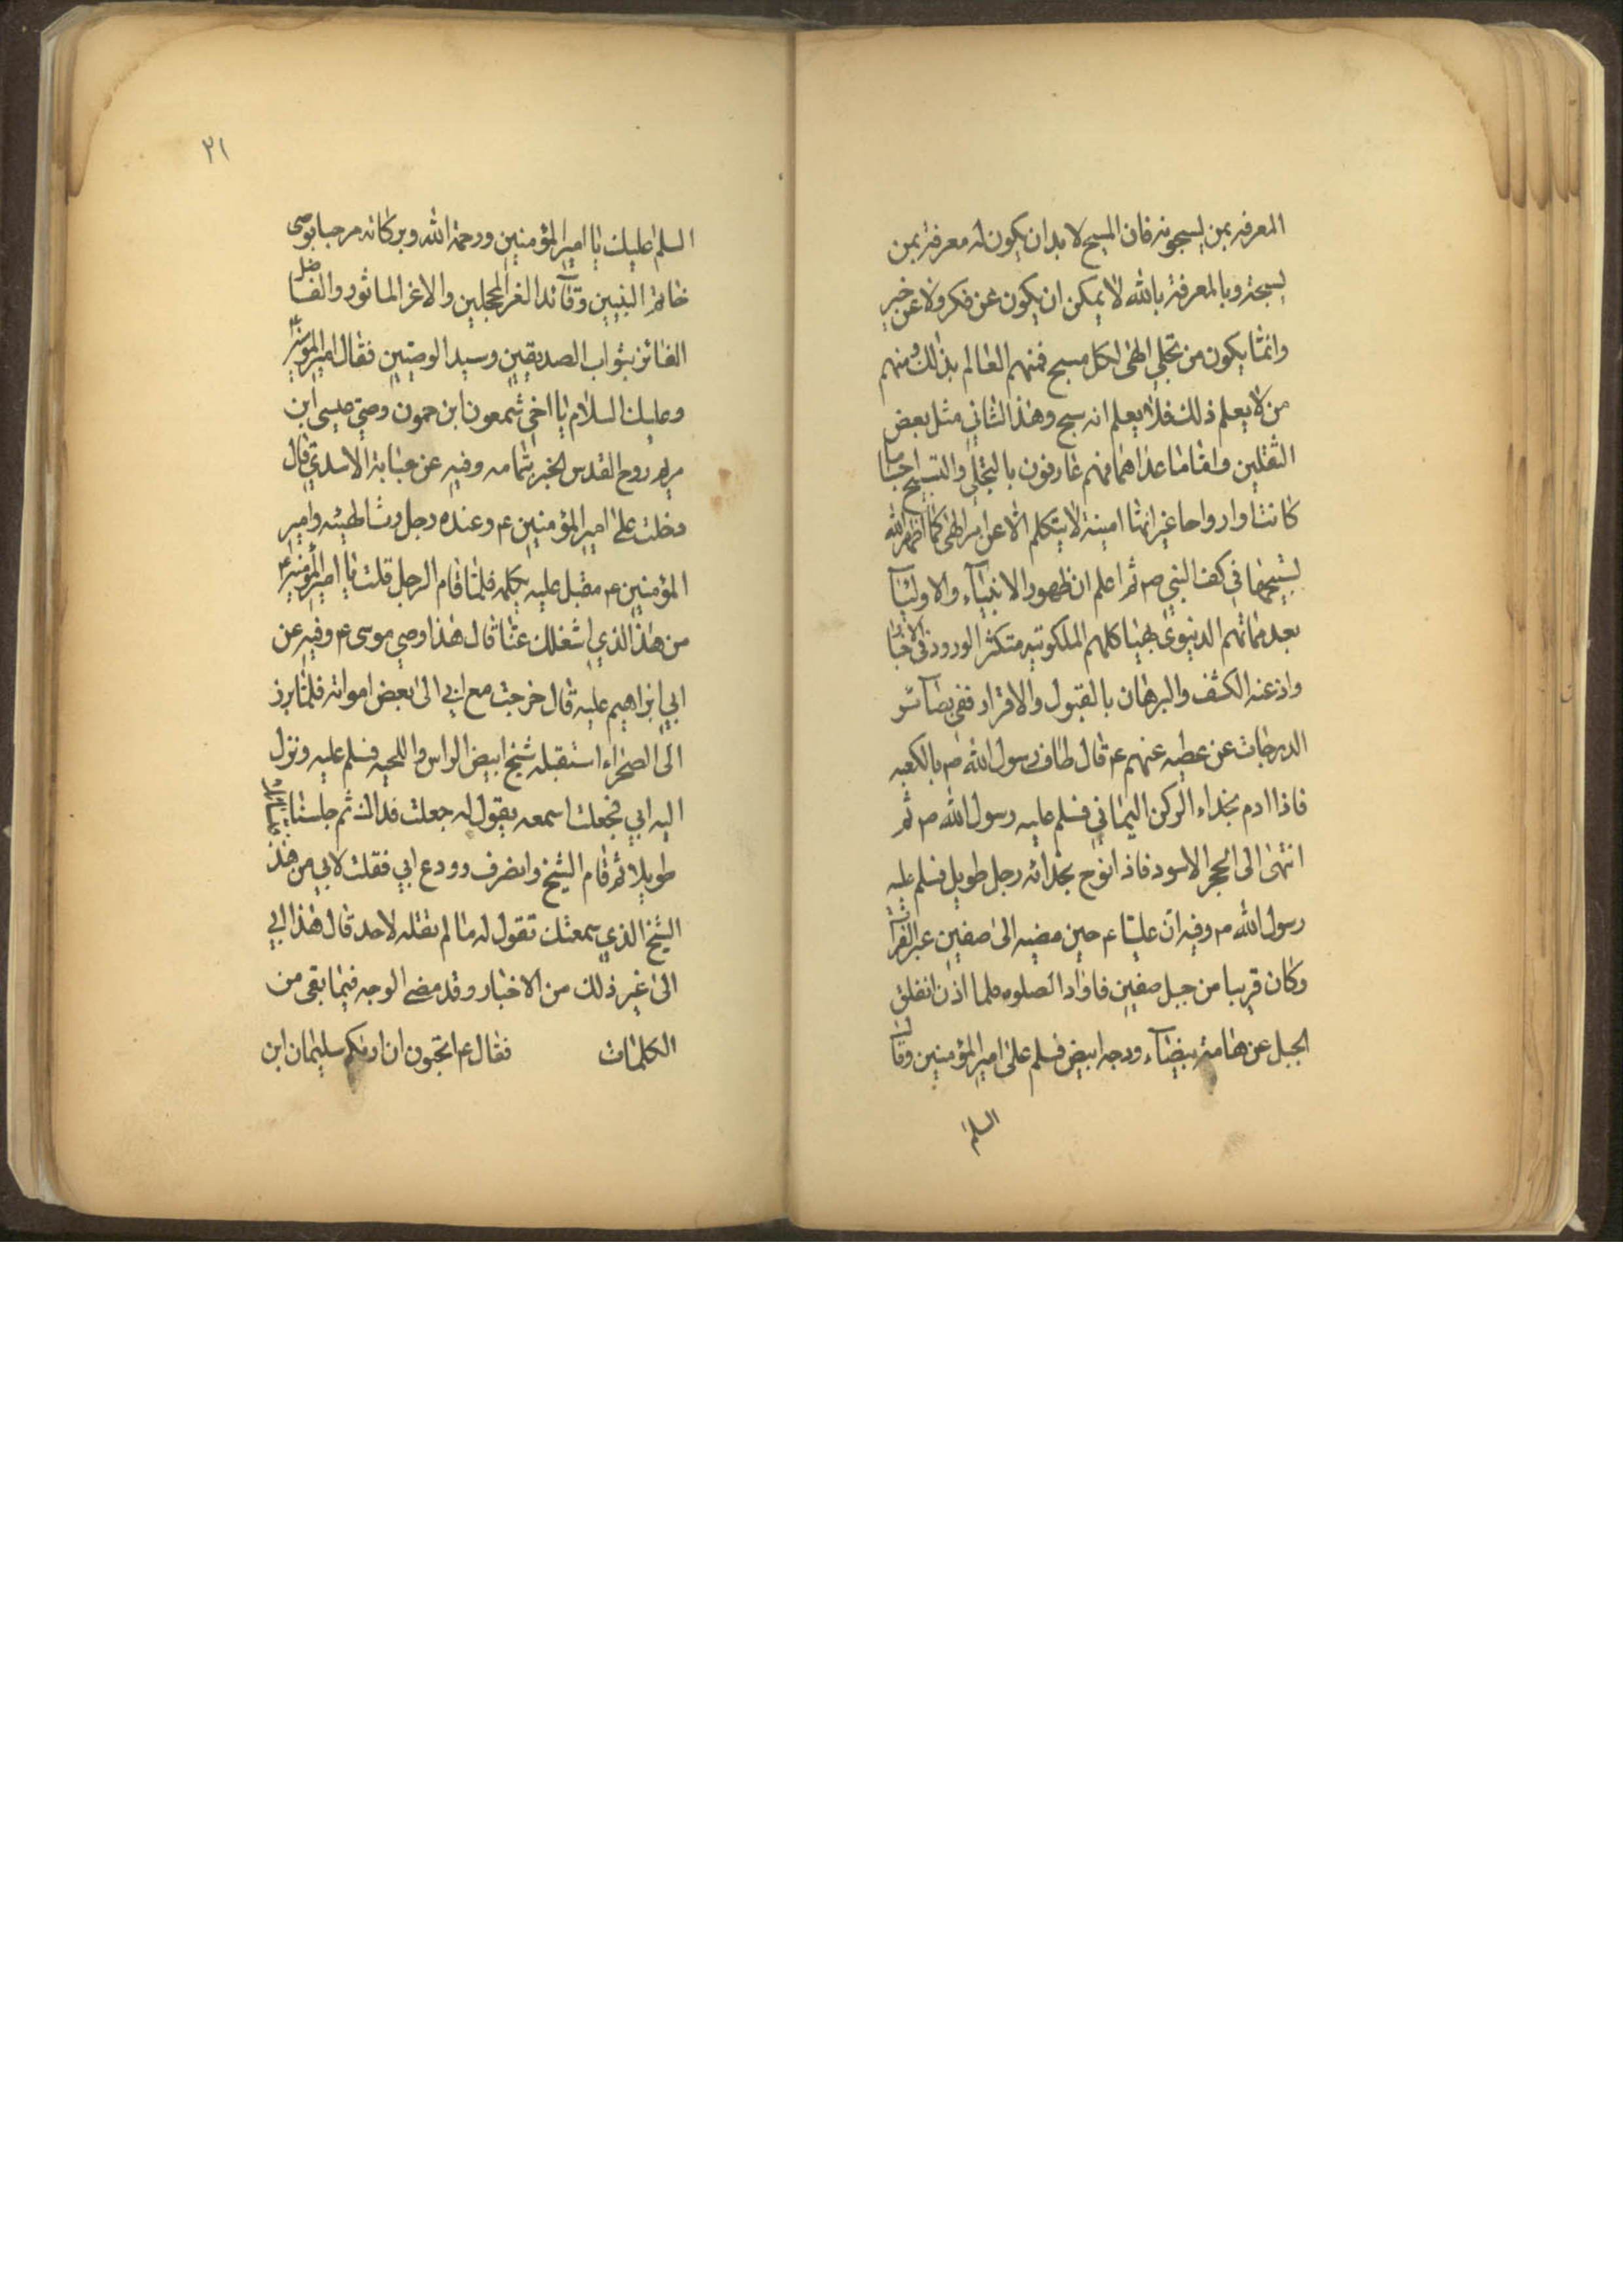 المعرفه بمن يسبحونه فان المسبح لا بد ان يكون له معرفة بمن
يسبحه وبالمعرفة بالله لا يمكن ان يكون عن فكر ولا عن خبر
وانما يكون من تجلي الهى لكل مسبح فمنهم العالم بذلك ومنهم
من لا يعلم ذلك فلا يعلم انه سبح وهذا الثاني مثل بعض
الثقلين واما ما عداهما فهم عارفون بالتجلي والتسبيح اجساما
كانت او ارواحا غير انها امينة لا يتكلم الا عن امر الهى كما اظهر الله
تسبيحها في كف النبي ص ثم اعلم ان ظهور الانبياء والاوليآ
بعد مماتهم الدنيوى بهياكلهم الملكوتيه متكثر الورود فى الاخبار
واذعنه الكشف والبرهان بالقبول والاقرار ففى بصآئر
الدرجات عن عطيه عنهم ع قال طاف رسول الله ص بالكعبه
فاذا ادم بحذاء الركن اليماني فسلم عليه رسول الله ص ثم
انتهى الى الحجر الاسود فاذا نوح بحذائه رجل طويل فسلم عليه
رسول الله ص وفيه ان عليا ع حين مضيه الى صفين عبر الفرات
وكان قريبا من جبل صفين فاواد الصلوه فلما اذن انفلق
الجبل عن هامة بيضآء ووجه ابيض فسلم على امير المؤمنين وقال
السلم
٢١
السلم عليك يا امير المؤمنين ورحمة الله وبركاته مرحبا بوصى
خاتم النبيين وقآئد الغر المحجلين والاغر الماثور والفاضل
الفائز بثواب الصديقين وسيد الوصيين فقال امير المؤمنين ع
وعليك السلام يا اخي شمعون ابن حمون وصي عيسى ابن
مريم روح القدس الخبر بتمامه وفيه عن عباية الاسدي قال
دخلت على امير المؤمنين ع وعنده رجل رث الهيئه وامير
المؤمنين ع مقبل عليه يكلمه فلما قام الرجل قلت يا امير المؤمنين ع
من هذا الذي اشغلك عنا قال هذا وصي موسى ع وفيه عن
ابي ابراهيم عليه قال خرجت مع ابي الى بعض امواله فلما برز
الى الصحراء استقبله شيخ ابيض الراس واللحيه فسلم عليه ونزل
اليه ابي فجعلت اسمعه يقول له جعلت فداك ثم جلسنا
طويلا ثم قام الشيخ وانصرف وودع ابي فقلت لابي من هذا
الشيخ الذي سمعتك تقول له ما لم تقله لاحد قال هذا ابي
الى غير ذلك من الاخبار وقد مضى الوجه فيما بقى من
الكلمات فقال ع اتحبون ان اريكم سليمان ابن